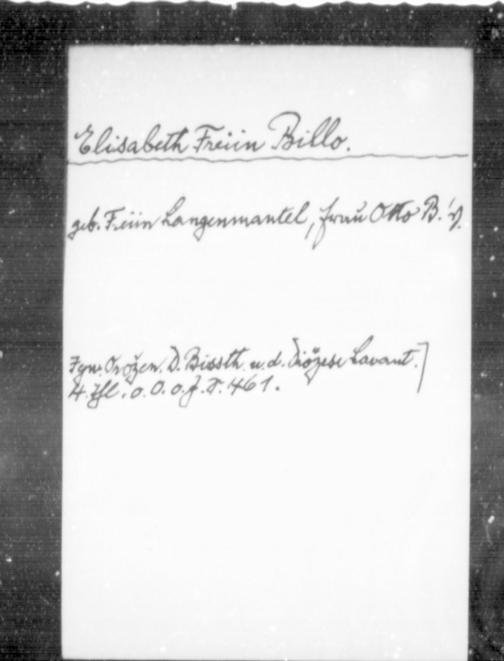 Elisabeth Freiin Billo.
geb. Freiin Langenmantel, frau Otto B.'s.
Ign. Orožen. D. Bissth. u. d. Diözese Lavant.]
4. Thl. o. O. o. J. S. 461.